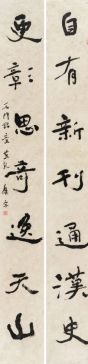 自有新刊通漢史
更彰思奇逸天山